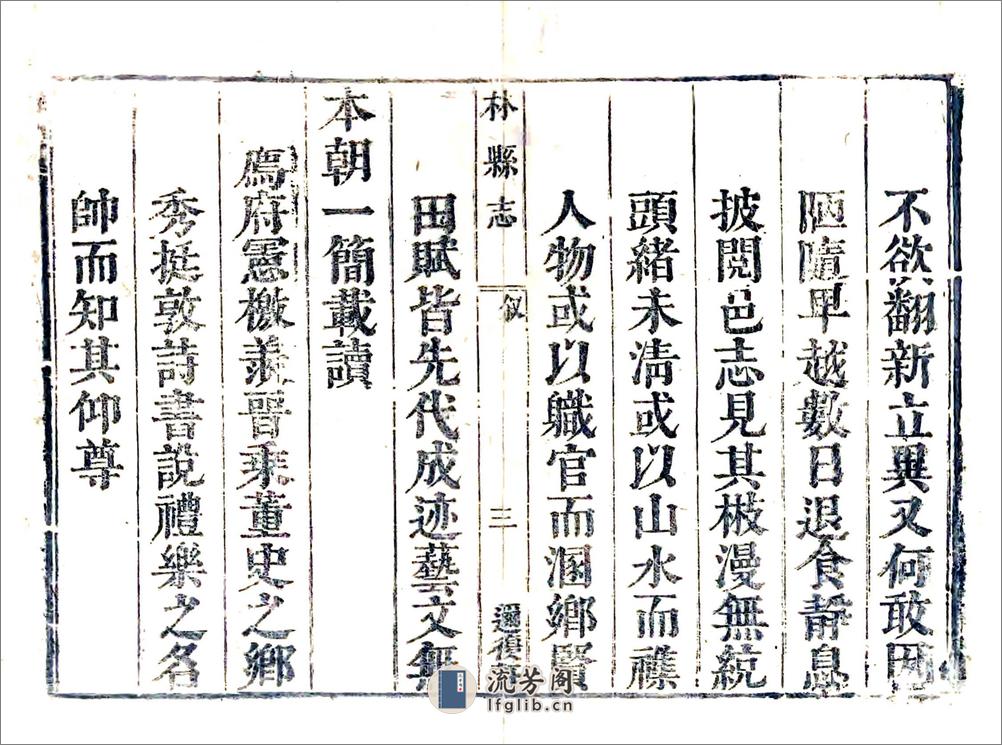 不欲翻新立異又何敢因
陋隨卑越數日退食靜息
披閱邑志見其枝漫無統
頭緒未清或以山水而襍
人物或以職官而溷鄉賢
林縣志
叙
三
邇復
田賦皆先代成迹藝文無
本朝一簡載讀
憲檄羨晉乘董史之鄉
秀挺敦詩書說禮樂之名
帥而知其仰尊
流芳阁
lfglib.cn